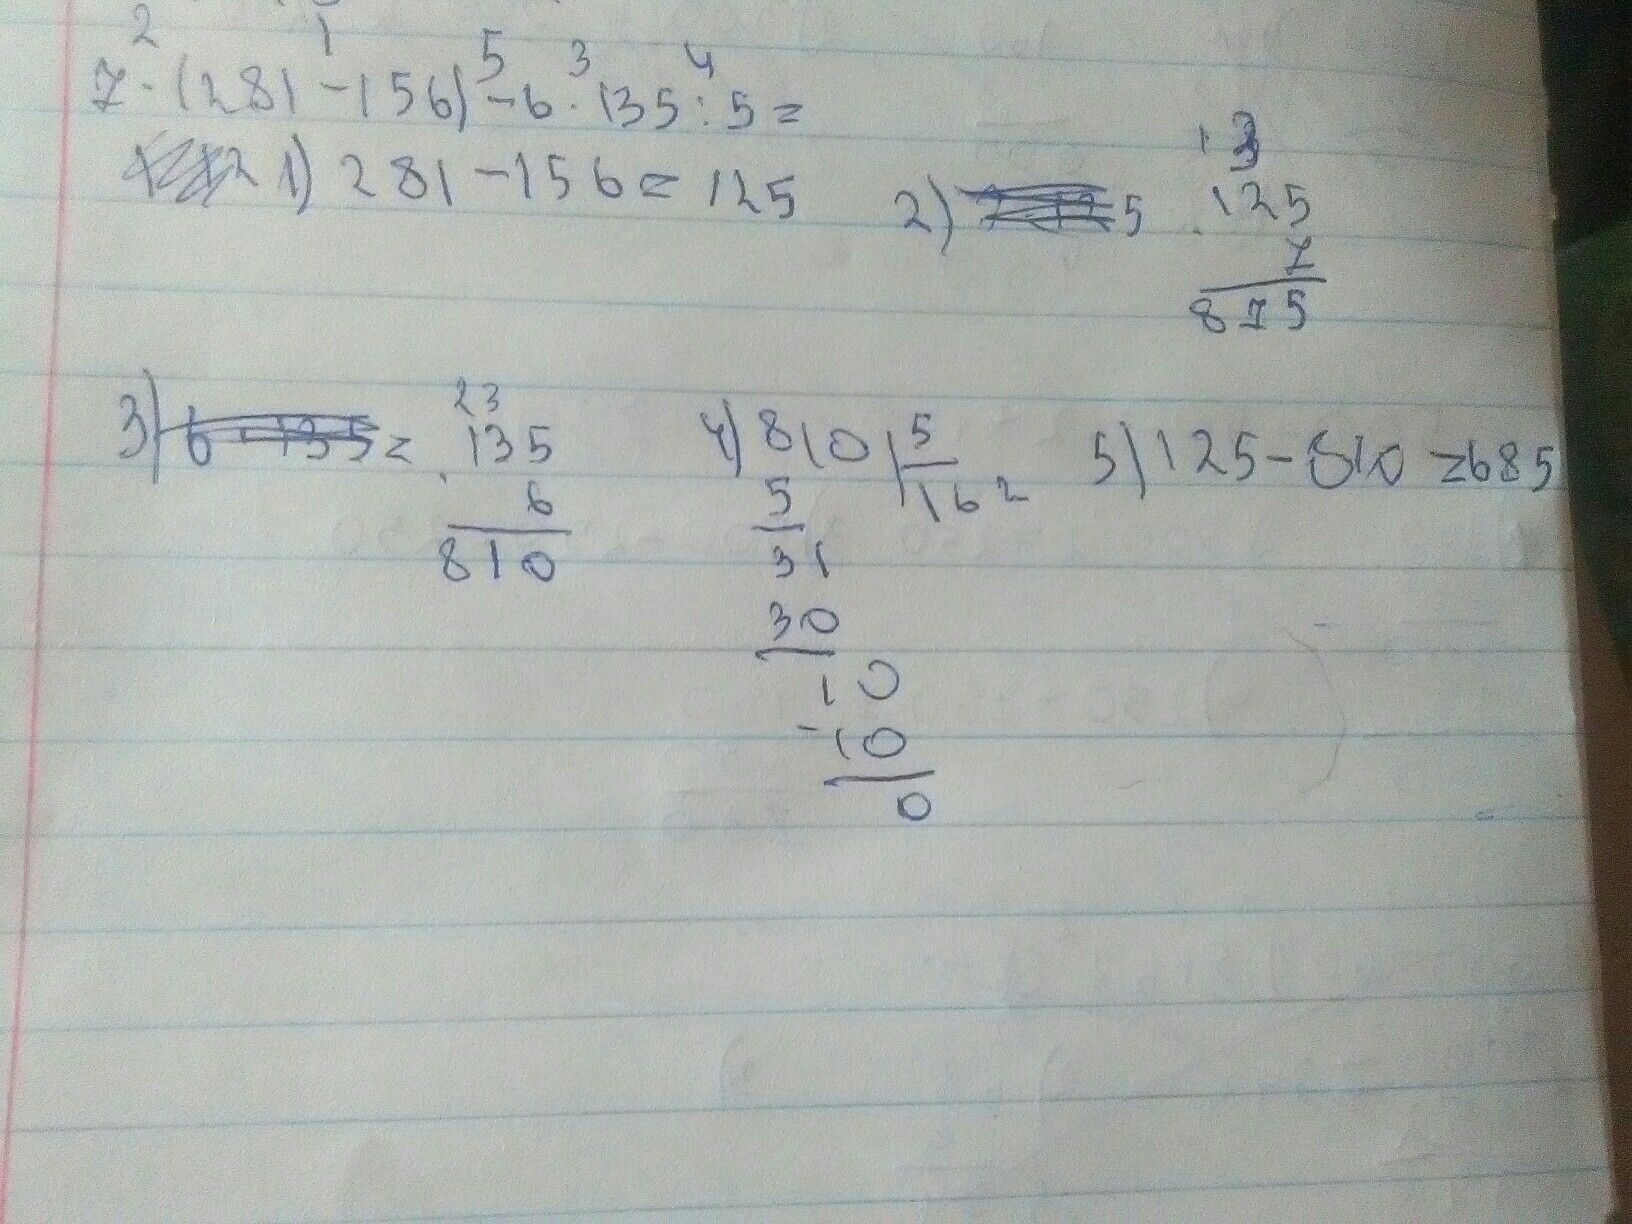 2 1 5 3 4
7·(281-156)-6·135:5=
1) 281-156=125
2) 5
13
·125
7
875
3) 6·135=
23
·135
6
810
4) 810|5
5 162
31
30
10
-10
0
5) 125-810=685